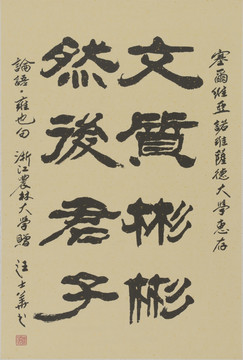 塞爾維亞諾維薩德大學惠存
文質彬彬
然後君子
論語·雍也句 浙江農林大學贈
汪士華書